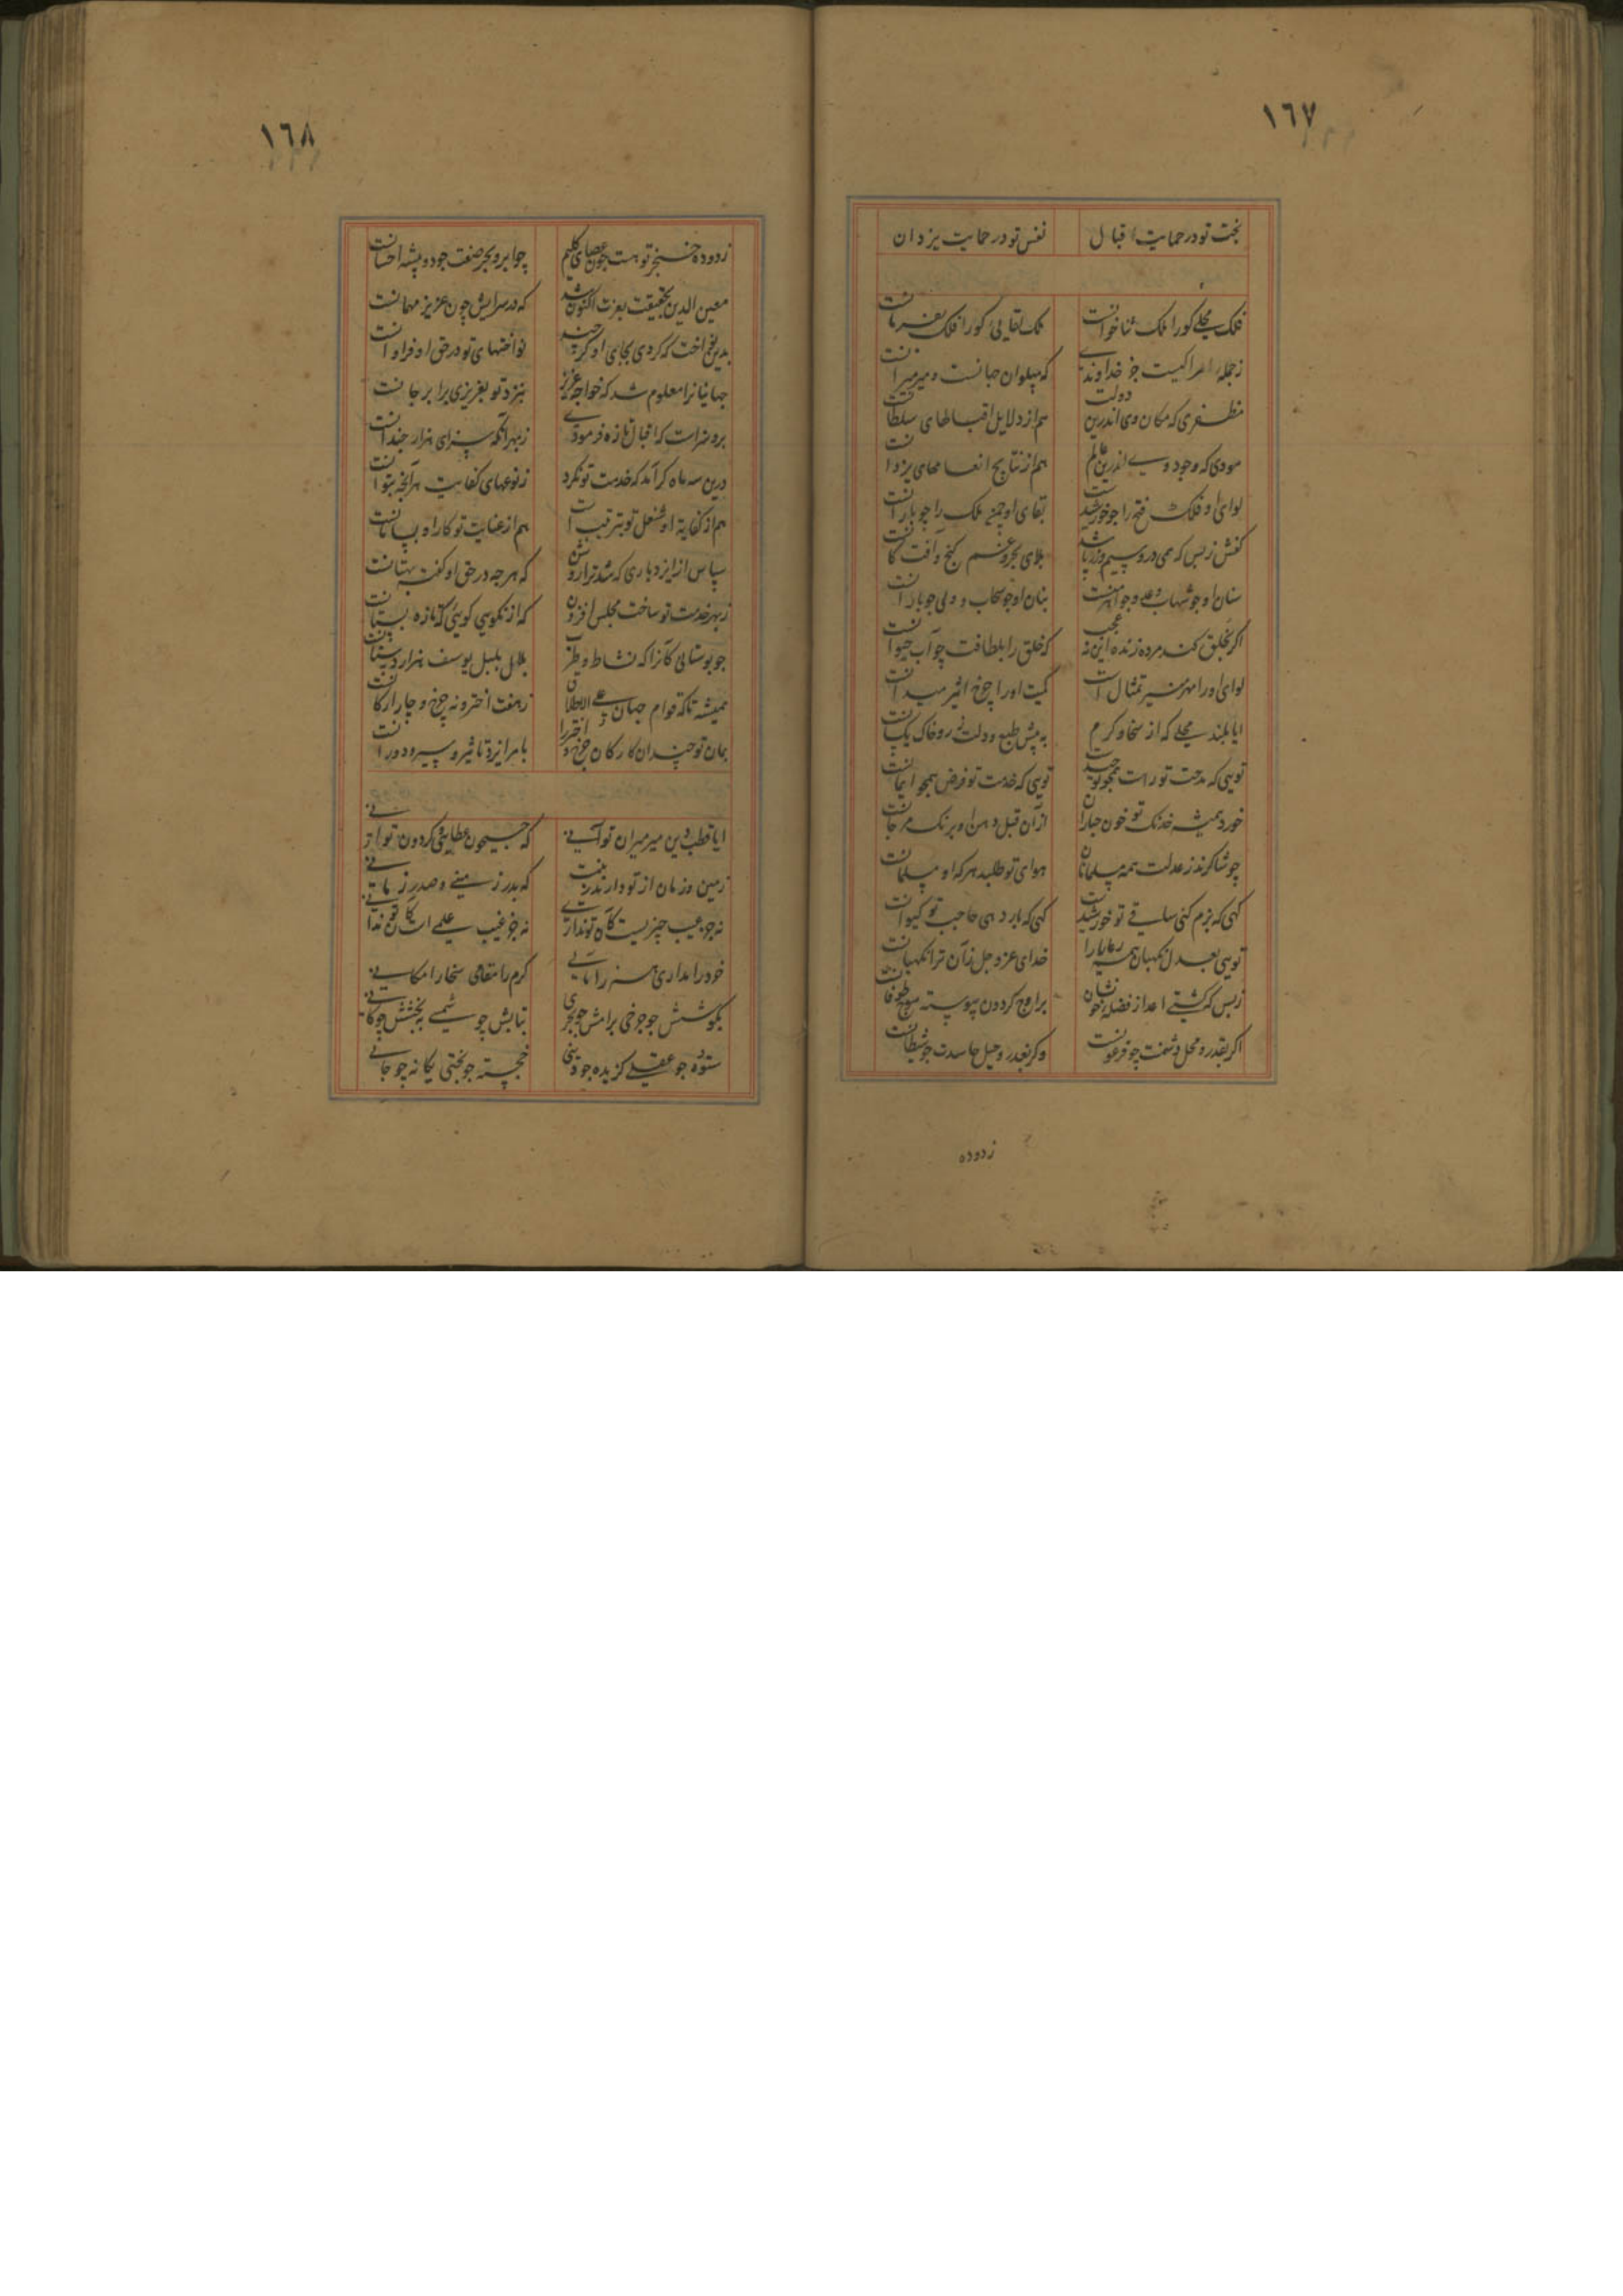 ١٦٧
بخت تو در حمایت اقبال نفس تو در حمایت یزدان
فلک محلی کورا ملک ثنا خوانست ملک لقایی کورا فلک بفرمانست
ز جمله امرا کیست جز خداوندی که پهلوان جهانست و میر میرانست
مظفری که مکان وی اندرین دولت هم از دلایل اقبالهای سلطانست
که وجود وی اندرین عالم هم از نتایج انعامهای یزدانست
لوای او فلک فتح را چو خورشیدست بقای او چمن ملک را چو بارانست
کفش زبس که همی در و سیم و زر پاشد بلای بحر و غم گنج و آفت کانست
سنان او چو شهاب و عدو چو اهرمنست بنان او چو سحاب و ولی چو بارانست
اگر بخلق کند مرده زنده این نه عجب که خلق را بلطافت چو آب حیوانست
لوای او را مهر منیر تمثال است کمیت او را چرخ اثیر میدانست
ایا بلند محلی که از سخا و کرم به پیش طبع و دلت زر و خاک یکسانست
تویی که مدحت تو راست همچو توحیدست تویی که خدمت تو فرض همچو ایمانست
خورد همیشه خدنک تو خون جباران از آن قبل دهن او برنک مرجانست
چو شاکرند ز عدلت همه مسلمانان هوای تو طلبد هر که او مسلمانست
کهی که بزم کنی ساقی تو خورشیدست کهی که بار دهی حاجب تو کیوانست
تویی بعدل نگهبان همیشه رعایا را خدای عز و جل زان ترا نگهبانست
زبس که کشتی اعدا از فضله خونشان بر اوج کردون پیوسته موج طوفانست
اگر بقدر و محل دشمنت چو فرعونست وگر بغدر و حیل حاسدت چو شیطانست
زدوده
١٦٨
زدوده خنجر تو هست چون عصای کلیم چو ابر و بحر صنعت جود و پیشه احسانست
معین الدین بحقیقت بعزت اکنون شد که در سرایش چون عزیز مهمانست
بدین نواخت که کردی بجای او کرچند نواختهای تو در حق او فراوانست
جهانیانرا معلوم شد که خواجه عزیز بنزد تو بعزیزی برابر جانست
بروضه است که اقبال تازه فرمودی زبهر آنکه سزای هزار چندانست
درین سه ماه کرآمد که خدمت تو نکرد ز نوعهای کفایت هر آنچه بتوانست
هم از کفایت او شغل تو بترتیب است هم از عنایت تو کار او بسامانست
سپاس از ایزد باری که شد ترا روشن که هر چه در حق او گفت بهتانست
زبهر خدمت تو ساخت مجلس افزون که از نکویی کویی که تازه بستانست
چو بوستانی کانرا که نشاط و طرب بلال بلبل یوسف هزار دستانست
همیشه تا که قوام جهان علی الاطلاق ز هفت اختر و نه چرخ و چار ارکانست
بمان تو چندان کارکان چرخ و اختر را بامر ایزد تاثیر و سیر و دورانست
ایا قطب دین میر میران تو آنی که جیحون عطایی و کردون توانی
زمین و زمان از تو دارند زینت که بدر زمینی و صدر زمانی
نه جز عیب چیزیست کان تو نداری نه جز غیب علمی است کان تو ندانی
خرد را مداری هنر را مآبی کرم را مقامی سخا را مکانی
بکوشش چو چرخی برامش چو بحری بتابش چو شمسی به بخشش چو کانی
ستوده چو عقلی گزیده چو دینی خجسته چو بختی یکانه چو جانی